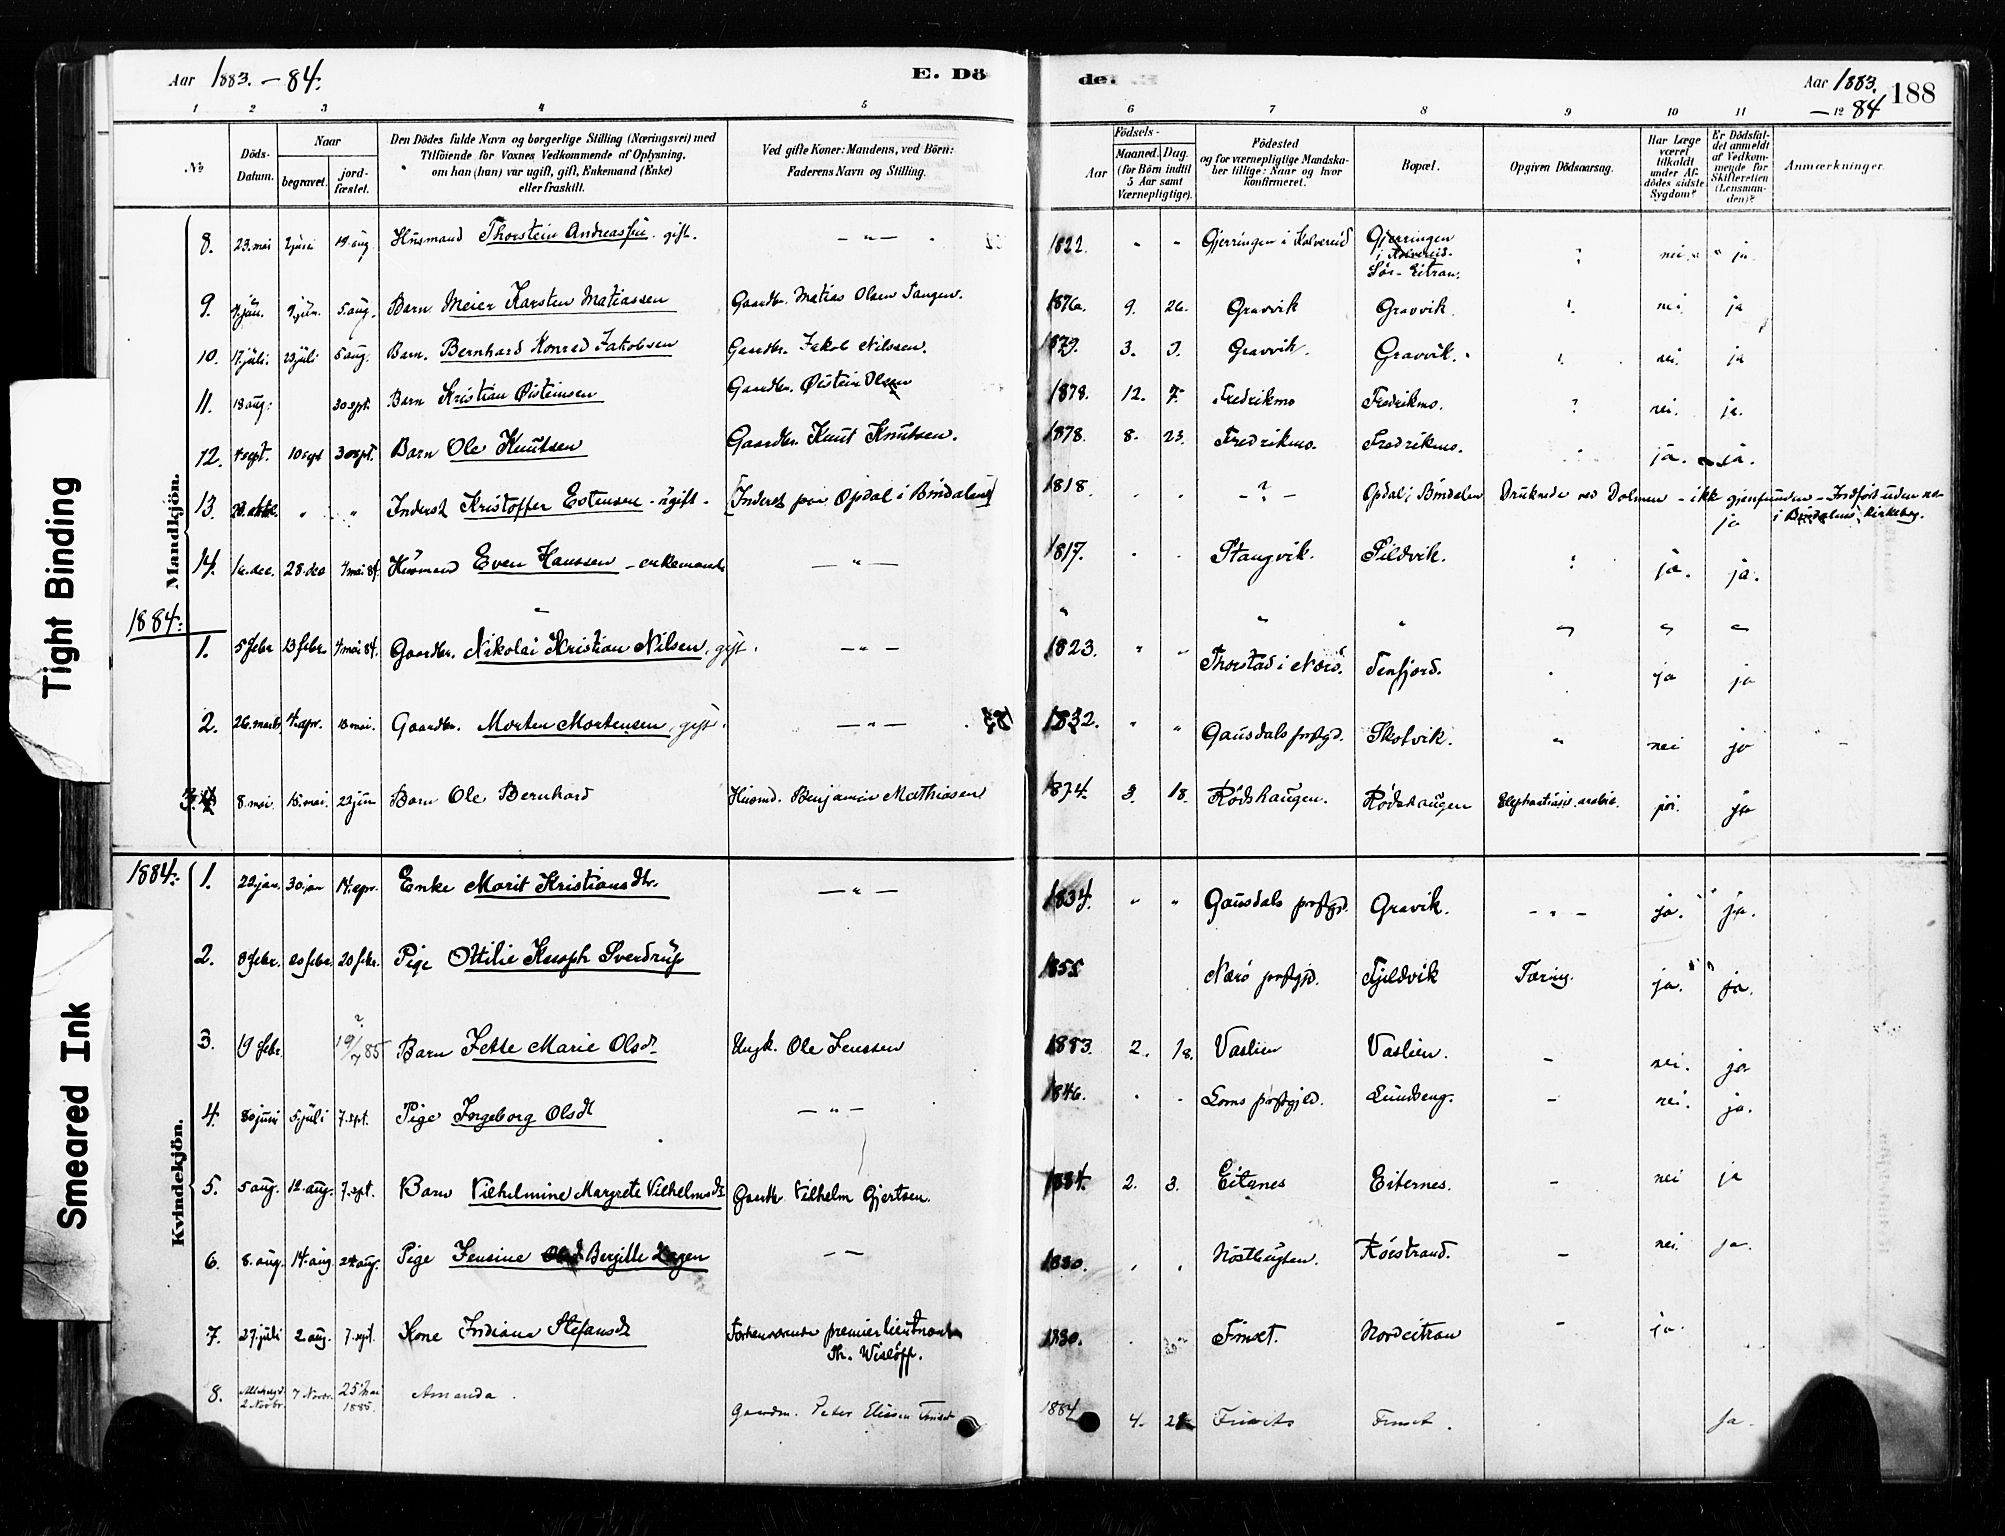 Aar 1883. – 84.
E. Dö
de.
Aar 1883. – 84
188
1 2 3 4 5 6 7 8 9 10 11 12
No
Döds-Datum.
Naar
begravet.
jord-fæstet.
Den Dödes fulde Navn og borgerlige Stilling (Næringsvei) med
Tilföiende for Voxnes Vedkommende af Oplysning,
om han (hun) var ugift, gift, Enkemand (Enke)
eller fraskilt.
Ved gifte Koner: Mandens, ved Börn:
Faderens Navn og Stilling.
Födsels-
Aar
Maaned. Dag.
(for Börn indtil
5 Aar samt
Værnepligtige).
Födested
og for værnepligtige Mandska-
ber tillige: Naar og hvor
konfirmeret.
Bopæl.
Opgiven Dödsaarsag.
Har Læge
været
tilkaldt
under Af-
dödes sidste
Sygdom?
Er Dödsfal-
det anmeldt
af Vedkom-
mende for
Skifteretten
(Lensman-
den)?
Anmærkninger.
Mandkjön.
8. 23. mai 2 juni 19. aug. Husmand Thorstein Andreassen. gift. – " – 1822. " " Gjerringen i Kolvereid Gjerringen i Kolvereid. Sør-Eitran. ? nei. ja.
9. 5. aug. Barn Meier Karsten Matiassen Gaardbr. Matias Olsen Tangen. 1876. 9. 26. Gravvik Gravvik. nei. ja
10. 17. juli. 23 juli 5 aug. Barn. Bernhard Konrad Jakobsen Gaardbr. Jakob Nilssen. 1879. 3. 3. Gravvik. Gravvik. nei. ja
11. 18 aug. 30 sept. Barn Kristian Øisteinsen Gaardbr. Øistein Olsen 1878. 12. 7. Fredrikmo Fredrikmo. ? nei. ja.
12. 4 sept. 10 sept 30 sept. Barn Ole Knutsen Gaardbr. Knut Knutsen. 1878. 8. 23. Fredrikmo. Fredrikmo. ja. ja.
13. " " Inderst Kristoffer Estensen – ugift – [Inderst paa Opdal i Bindalen] 1818. – ? – Opdal i Bindalen Druknede ved Dolmen – ikk gjenfunden – Indført uden no- i Bindalens kirkebog. ja
14. 16. dec. 28. dec 4 mai 84. Husmand Even Hanssen – enkemand – " – 1817. Stangvik. Sildvik. ja. ja.
1884:
1. 5 febr 13 febr. 4 mai 84. Gaardbr. Nikolai Kristian Nilsen, gift. – " – 1823. " " Thorstad i Nærø. Tenfjord. ja ja
2. 26. marts 4. apr. 18 mai. Gaardbr. Morten Mortensen, gift. – " – 1832. " " Gausdals prstgd. Skotvik. " nei ja
3. 8. mai. 15. mai. 22 jun Barn Ole Bernhard Husmd. Benjamin Mathiasen 1874. 3. 18. Rödshaugen. Rödshaugen Elephantiasis arabia. ja
Kvindekjön.
1884: 1. 22 jan. 30. jan 14. apr. Enke Marit Kristiansdtr. – " – 1834. " " Gausdals prstgd. Gravik. – " – ja. ja.
2. 8 febr. 20 febr. 20 febr. Pige Ottilie Knoph Sverdrup 1855 Nærø prstgjd. Fjeldvik Tæring. ja. ja.
3. 19 febr. ? 19/7 85 Barn Jette Marie Olsdt. Ungk. Ole Jenssen 1883. 2. 18. Vaslien Vaslien. – nei. ja
4. 30 juni 5 juli 7. sept. Pige Ingeborg Olsdt – " – 1846. Loms prstgjld. Lundseng. – nei. ja.
5. 5 aug. 12. aug. 7. sept. Barn Vilhelmine Margrete Vilhelmsdt. Gaardbr. Vilhelm Gjertsen. 1884. 2. 3. Eiternes Eiternes. – nei ja
6. 8. aug. 14. aug 24 aug. Pige Jensine Bergitte Lagen – – 1830. Nöstbugten. Röistrand. – nei. ja.
7. 27. juli 2 aug. 7. sept. Kone Indiana Stefansdt Forhenværende premierlieutnant Th. Wisløff. 1830. Finset. Nordeitran – ja.
8. 2 Novbr. 7 Novbr. 25 Mai 1885. Amanda. Gaardm. Peter Elissen Finset 1884 4. Finset. ja.
Tight Binding
Smeared Ink